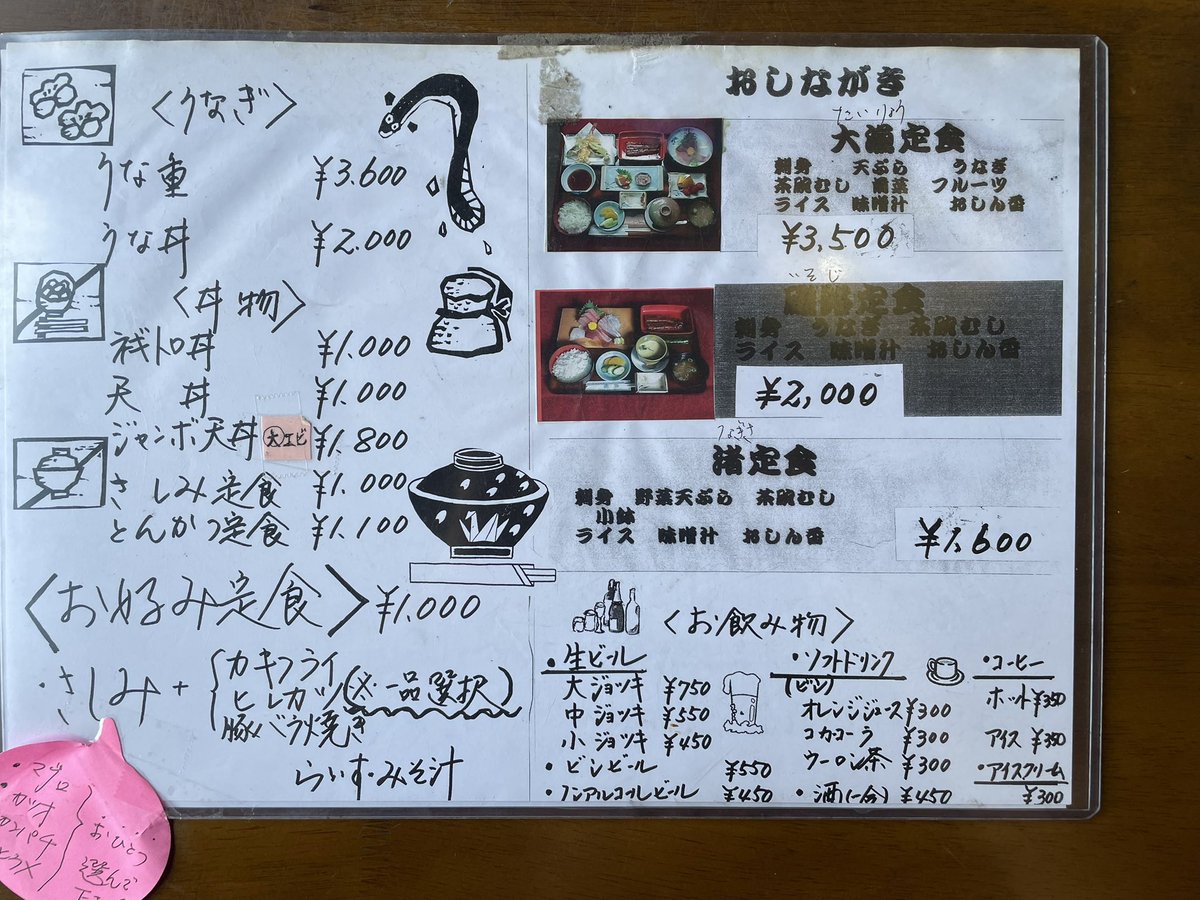 <うなぎ>
うな重 ¥3.600
うな丼 ¥2.000
<丼物>
ネギトロ丼 ¥1.000
天丼 ¥1.000
ジャンボ天丼 大エビ ¥1.800
さしみ定食 ¥1.000
とんかつ定食 ¥1.100
<お好み定食> ¥1.000
・さしみ+
カキフライ
ヒレカツ (※一品選択)
豚バラ焼き
らいす・みそ汁
・マグロ
・カツオ
カンパチ
おひとつ
選んで
おしながき
たいりょう
大漁定食
刺身 天ぷら うなぎ
茶碗むし 前菜 フルーツ
ライス 味噌汁 おしん香
¥3,500
いそじ
定食
刺身 うなぎ 茶碗むし
ライス 味噌汁 おしん香
¥2,000
なぎさ
渚定食
刺身 野菜天ぷら 茶碗むし
小鉢
ライス 味噌汁 おしん香
¥1,600
<お飲み物>
・生ビール
大ジョッキ ¥750
中ジョッキ ¥550
小ジョッキ ¥450
・ビンビール ¥550
・ノンアルコールビール ¥450
・ソフトドリンク
(ビン)
オレンジジュース ¥300
コカコーラ ¥300
ウーロン茶 ¥300
・酒(一合) ¥450
・コーヒー
ホット ¥350
アイス ¥350
・アイスクリーム
¥300